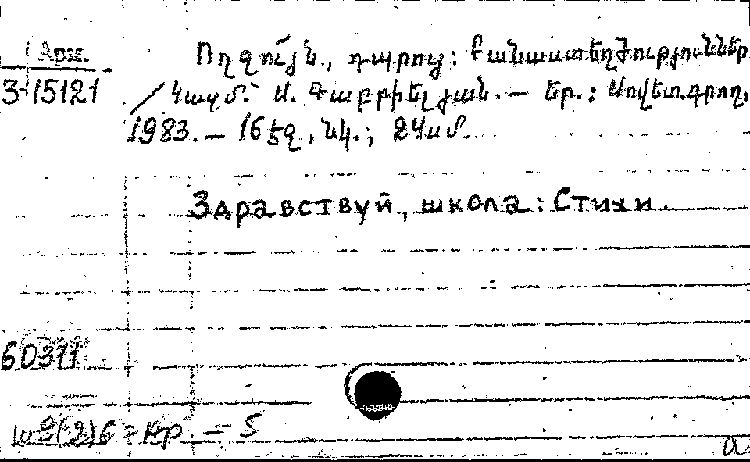 Арм.
3-15121
Ողջո՜ւյն, դպրոց: Բանաստեղծություններ
/ Կազմ.՝ Ս. Գաբրիելյան. — Եր.: Սովետ. գրող,
1983. — 16 էջ, նկ.; 24 սմ.
Здравствуй, школа: Стихи.
60371
5
а